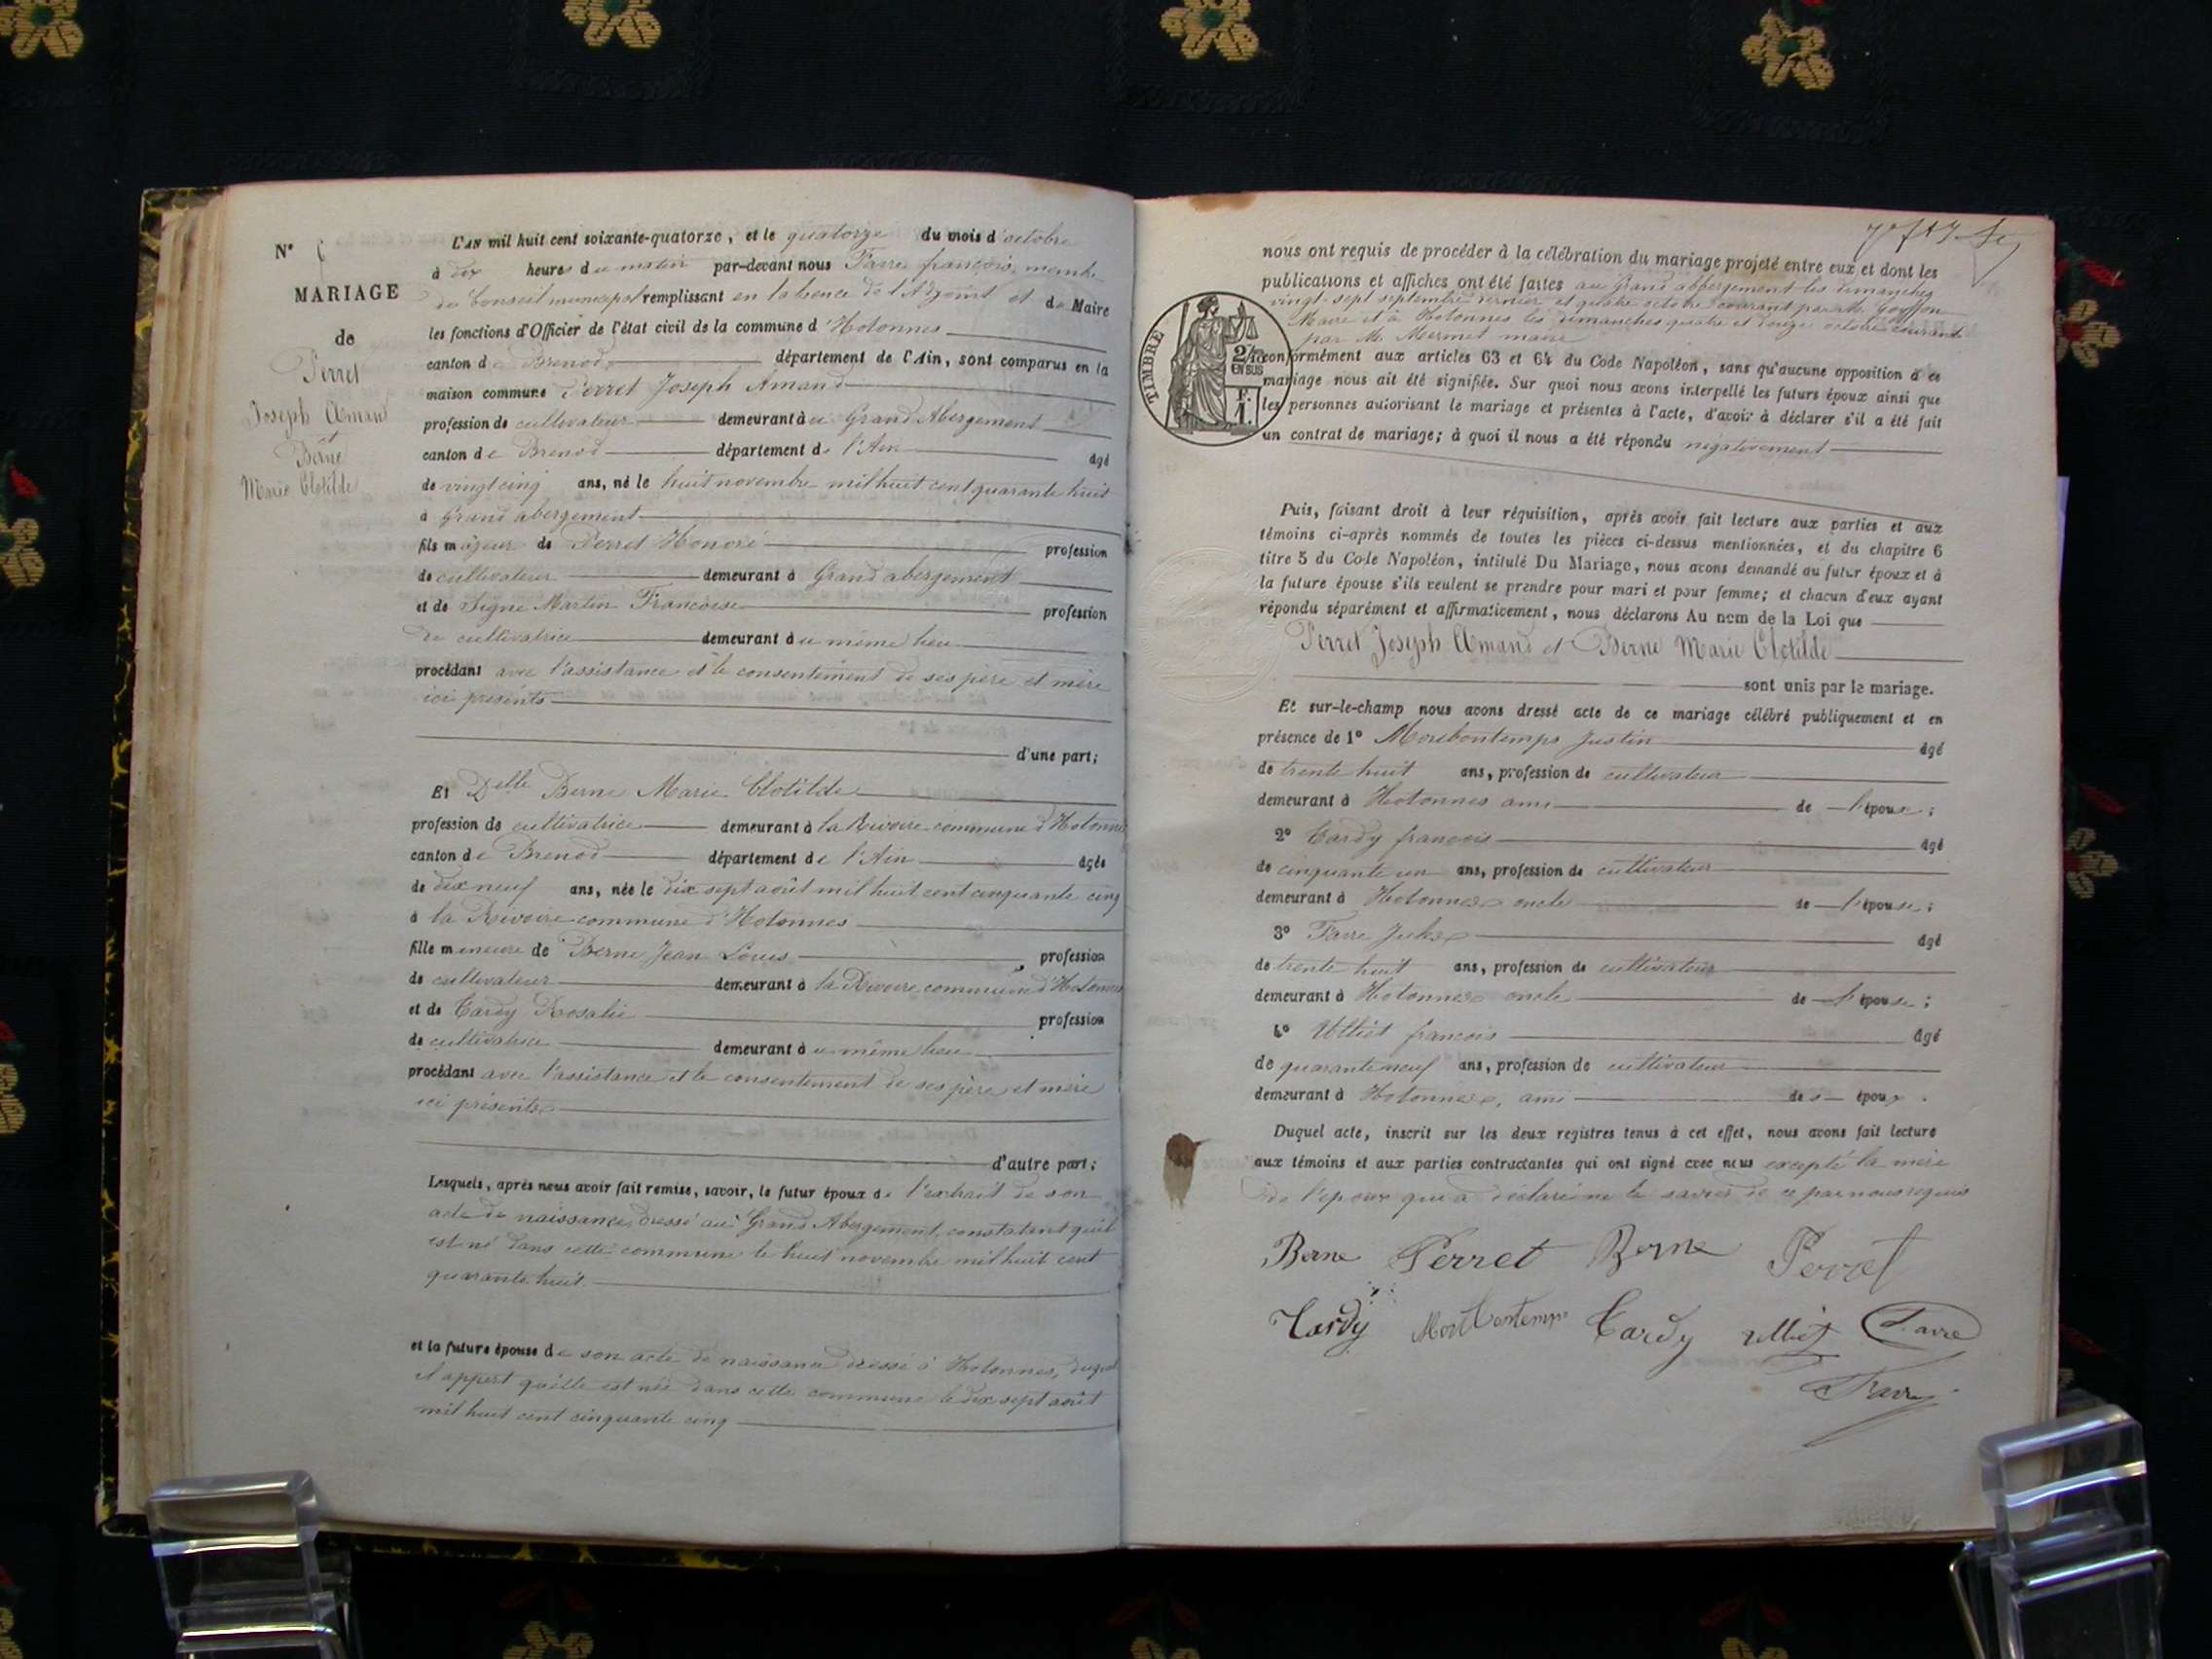 N° 6
MARIAGE
de
Perret
Joseph Amand
et
Berne
Marie Clotilde
L'AN mil huit cent soixante-quatorze, et le quatorze du mois d'octobre
à dix heures du matin par-devant nous Favre françois, membre
du Conseil municipal remplissant en l'absence de l'Adjoint et de Maire
les fonctions d'Officier de l'état civil de la commune d'Hotonnes
canton de Brenod département de l'Ain, sont comparus en la
maison commune Perret Joseph Amand
profession de cultivateur demeurant au Grand Abergement
canton de Brenod département de l'Ain âgé
de vingt cinq ans, né le huit novembre mil huit cent quarante huit
à Grand abergement
fils majeur de Perret Honoré profession
de cultivateur demeurant à Grand abergement
et de Signe Martin Francoise profession
de cultivatrice demeurant au même lieu
procédant avec l'assistance et le consentement de ses père et mère
ici présents
d'une part;
Et Delle Berne Marie Clotilde
profession de cultivatrice demeurant à la Rivoire commune d'Hotonnes
canton de Brenod département de l'Ain âgée
de dix neuf ans, née le dix sept août mil huit cent cinquante cinq
à la Rivoire commune d'Hotonnes
fille mineure de Berne Jean Louis profession
de cultivateur demeurant à la Rivoire commune d'Hotonnes
et de Tardy Rosalie profession
de cultivatrice demeurant au même lieu
procédant avec l'assistance et le consentement de ses père et mère
ici présents
d'autre part;
Lesquels, après nous avoir fait remise, savoir, le futur époux de l'extrait de son
acte de naissance, dressé au Grand Abergement, constatant qu'il
est né dans cette commune le huit novembre mil huit cent
quarante huit.
et la future épouse de son acte de naissance dressé à Hotonnes, duquel
il appert qu'elle est née dans cette commune le dix sept août
mil huit cent cinquante cinq
nous ont requis de procéder à la célébration du mariage projeté entre eux et dont les
publications et affiches ont été faites au Grand abbergement les dimanches
vingt-sept septembre dernier et quatre octobre courant par M.
Maire et à Hotonnes les dimanches quatre et onze octobre courant
par M. Mermet maire
TIMBRE
2/10
EN SUS
F.
1.
conformément aux articles 63 et 64 du Code Napoléon, sans qu'aucune opposition à ce
mariage nous ait été signifiée. Sur quoi nous avons interpellé les futurs époux ainsi que
les personnes autorisant le mariage et présentes à l'acte, d'avoir à déclarer s'il a été fait
un contrat de mariage; à quoi il nous a été répondu négativement
Puis, faisant droit à leur réquisition, après avoir fait lecture aux parties et aux
témoins ci-après nommés de toutes les pièces ci-dessus mentionnées, et du chapitre 6
titre 5 du Code Napoléon, intitulé Du Mariage, nous avons demandé au futur époux et à
la future épouse s'ils veulent se prendre pour mari et pour femme; et chacun d'eux ayant
répondu séparément et affirmativement, nous déclarons Au nom de la Loi que
Perret Joseph Amand et Berne Marie Clotilde
sont unis par le mariage.
Et sur-le-champ nous avons dressé acte de ce mariage célébré publiquement et en
présence de 1° Montbontemps Justin âgé
de trente huit ans, profession de cultivateur
demeurant à Hotonnes ami de l'épouse;
2° Tardy françois âgé
de cinquante un ans, profession de cultivateur
demeurant à Hotonnes oncle de l'épouse;
3° Favre Jules âgé
de trente huit ans, profession de cultivateur
demeurant à Hotonnes oncle de l'épouse;
4° Ulliet françois âgé
de quarante neuf ans, profession de cultivateur
demeurant à Hotonnes, ami des époux.
Duquel acte, inscrit sur les deux registres tenus à cet effet, nous avons fait lecture
aux témoins et aux parties contractantes qui ont signé avec nous excepté la mère
de l'époux qui a déclaré ne le savoir de ce par nous requis
Berne Perret Berne Perret
Tardy Montbontemps Tardy Ulliet Favre
Favre